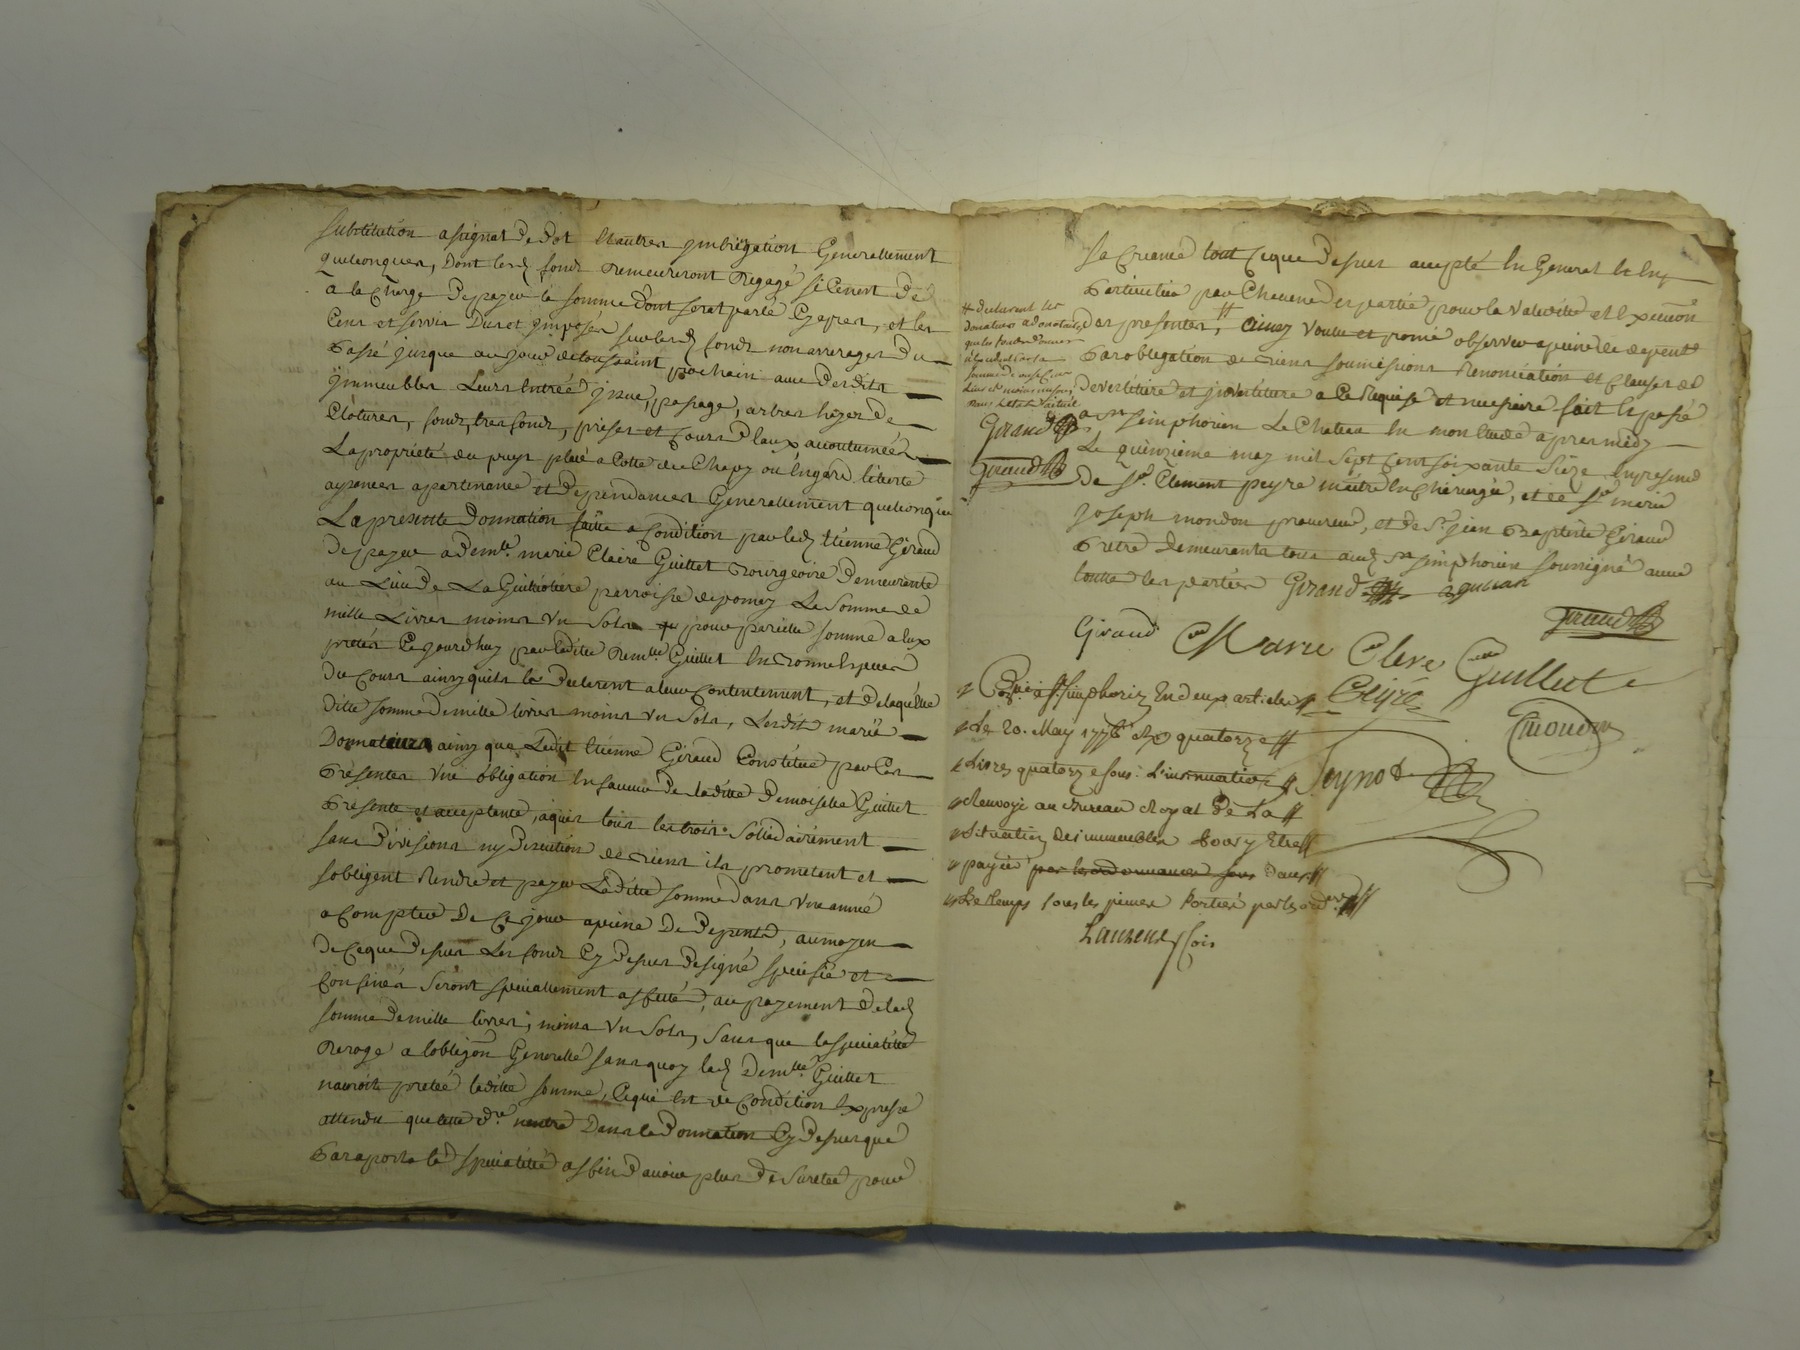 substitution assignat de dot et autres ypothequation Generallement
quelconques, dont lesd fonds demeureront degagé si ce n'est de
a la charge de payer la somme dont serat parlé cy apres, et les
cens et servis dus et imposés sur lesd fonds non arrerages du
passé jusque au jour de toussaint prochain avec desdits
immeubles leurs entrée issue, passage, arbres hayes de
Clotures, fonds, tres fonds, prises et cours d'eaux accoutumées
La propriété du puys placé a Cotté du Chapy ou engard
aysances apartenance et dependances Generallement quelconque
La presente donnation faite a condition par led etienne Giraud
de payer a demlle marie Claire Guillet Bourgeoise demeurante
au Lieu de La Guilliotiere parroisse de pomey La Somme de
mille Livres moins un Sols pour pareille somme a eux
pretés Ce jourdhuy par ladite demlle Guillet en bonne especes
du cours ainsy quils le declarent a leur Contentement, et delaquelle
ditte somme de mille livres moins un Sols, Lesdits mariés
Donnateurs ainsy que Ledit etienne Giraud Constitue par Ces
Presentes une obligation en faveur de ladite demoiselle Guillet
Presente et acceptante, aquis tous les trois Sollidairement
sans division ny discution de biens ils promettent et
sobligent Rendre et payer Laditte somme dans une année
a Compter de Ce jour a peine de depents, au moyen
de Ceque dessus Les fonds Cy dessus designé speciffié et
Confinés Seront specialement affecté, au payement de lad
somme de mille livres, moins un Sols, Sans que la specialitté
deroge a l'obligaon Generalle sans quoy lad demlle Guillet
nauroit pretée laditte somme, Ce qui est de Condition expresse
attendu que cette dre n'entre Dans la Donnation Cy dessus que
par aport a la specialitté affin d'avoir plus de Suretée pour
Sa Creance tout Ceque dessus accepté en General et en
Particulier par Chacune des parties pour la Validitée et execution
des presentes, ainsy voulu et promis observer a peine de depents
Par obligation de biens soumissions Renonciation et Clauses de
devestiture et investiture a ce Requise et necessaire fait et passé
a st simphorien Le Chateau en mon etude apres midy
Le quinzieme may mil sept cent soixante Seize en presence
de sr. Clement peyre maitre en chirurgie, et de sr marie
joseph mondon procureur, et de sr jean Baptiste Giraud
Pretre demeurants tous aud st simphorien soussigné avec
toutte les parties Giraud
# declarant les
donateurs
Giraud
Giraud
Giraud
Giraud
Marie Clere Guillet
Peyre
Mondon
Joynod
Coné a St Simphorien En deux articles
Le 20. May 1776 quatorze
Livres quatorze sous: L'insinuation
Renvoyé au Bureau Royal de La
Situation des immeubles Pour y Etre
payée par les ordonnances sous dans
Le temps sous les peines Portées par les ord
Laurencçois